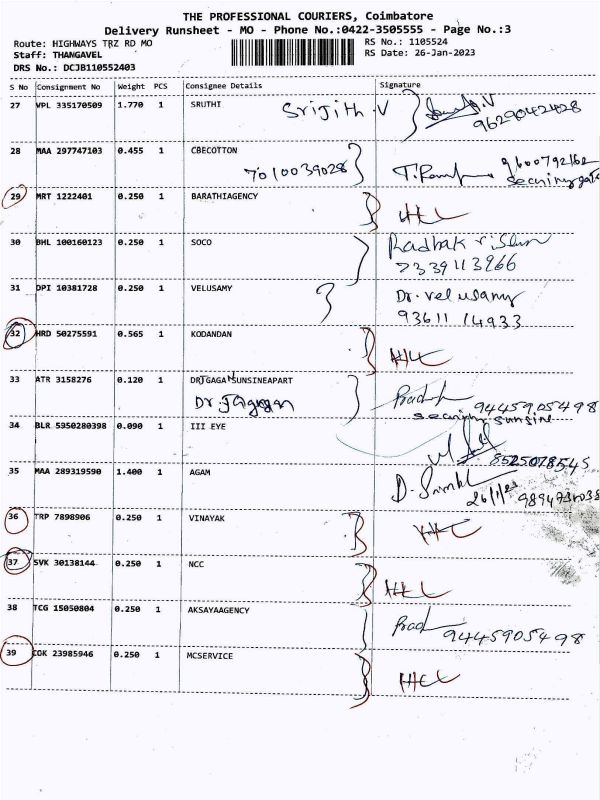 THE PROFESSIONAL COURIERS, Coimbatore
Delivery Runsheet - MO - Phone No.:0422-3505555 - Page No.:3
Route: HIGHWAYS TRZ RD MO
RS No.: 1105524
Staff: THANGAVEL
RS Date: 26-Jan-2023
DRS No.: DCJB110552403
S No Consignment No Weight PCS Consignee Details Signature
27 VPL 335170509 1.770 1 SRUTHI
Srijith.V
9629042428
28 MAA 297747103 0.455 1 CBECOTTON
7010039028
9600792162
29 MRT 1222401 0.250 1 BARATHIAGENCY
30 BHL 100160123 0.250 1 SOCO
Radhakrishnan
7339113966
31 DPI 10381728 0.250 1 VELUSAMY
Dr.velusamy
93611 14933
32 HRD 50275591 0.565 1 KODANDAN
33 ATR 3158276 0.120 1 DRJGAGANSUNSINEAPART
Dr. Jagagan
9445905498
security sunsine
34 BLR 5950280398 0.090 1 III EYE
8525078545
35 MAA 289319590 1.400 1 AGAM
36 TRP 7898906 0.250 1 VINAYAK
37 SVK 30138144 0.250 1 NCC
38 TCG 15050804 0.250 1 AKSAYAAGENCY
9445905498
39 COK 23985946 0.250 1 MCSERVICE